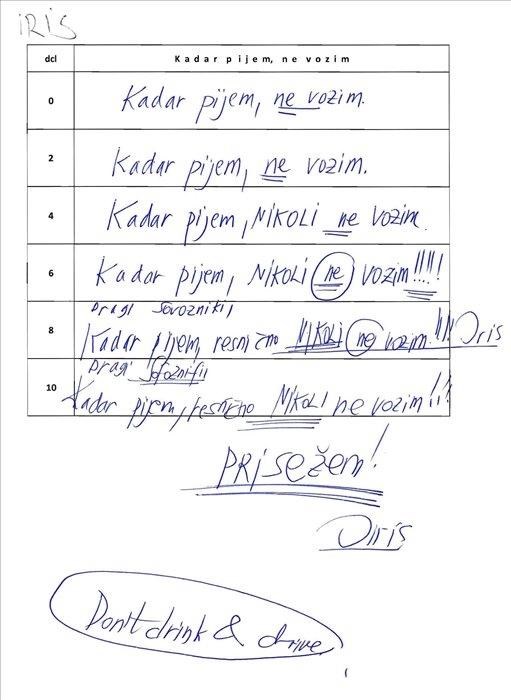 IRIS
dcl Kadar pijem, ne vozim
0 Kadar pijem, ne vozim.
2 Kadar pijem, ne vozim.
4 Kadar pijem, NIKOLI ne vozim.
6 Kadar pijem, NIKOLI ne vozim!!!!!
Dragi sovozniki,
8 Kadar pijem, resnično NIKOLI ne vozim.!!! Iris
Dragi
10 Kadar pijem, resnično NIKOLI ne vozim!!!
PRISEŽEM!
Iris
Don't drink & drive